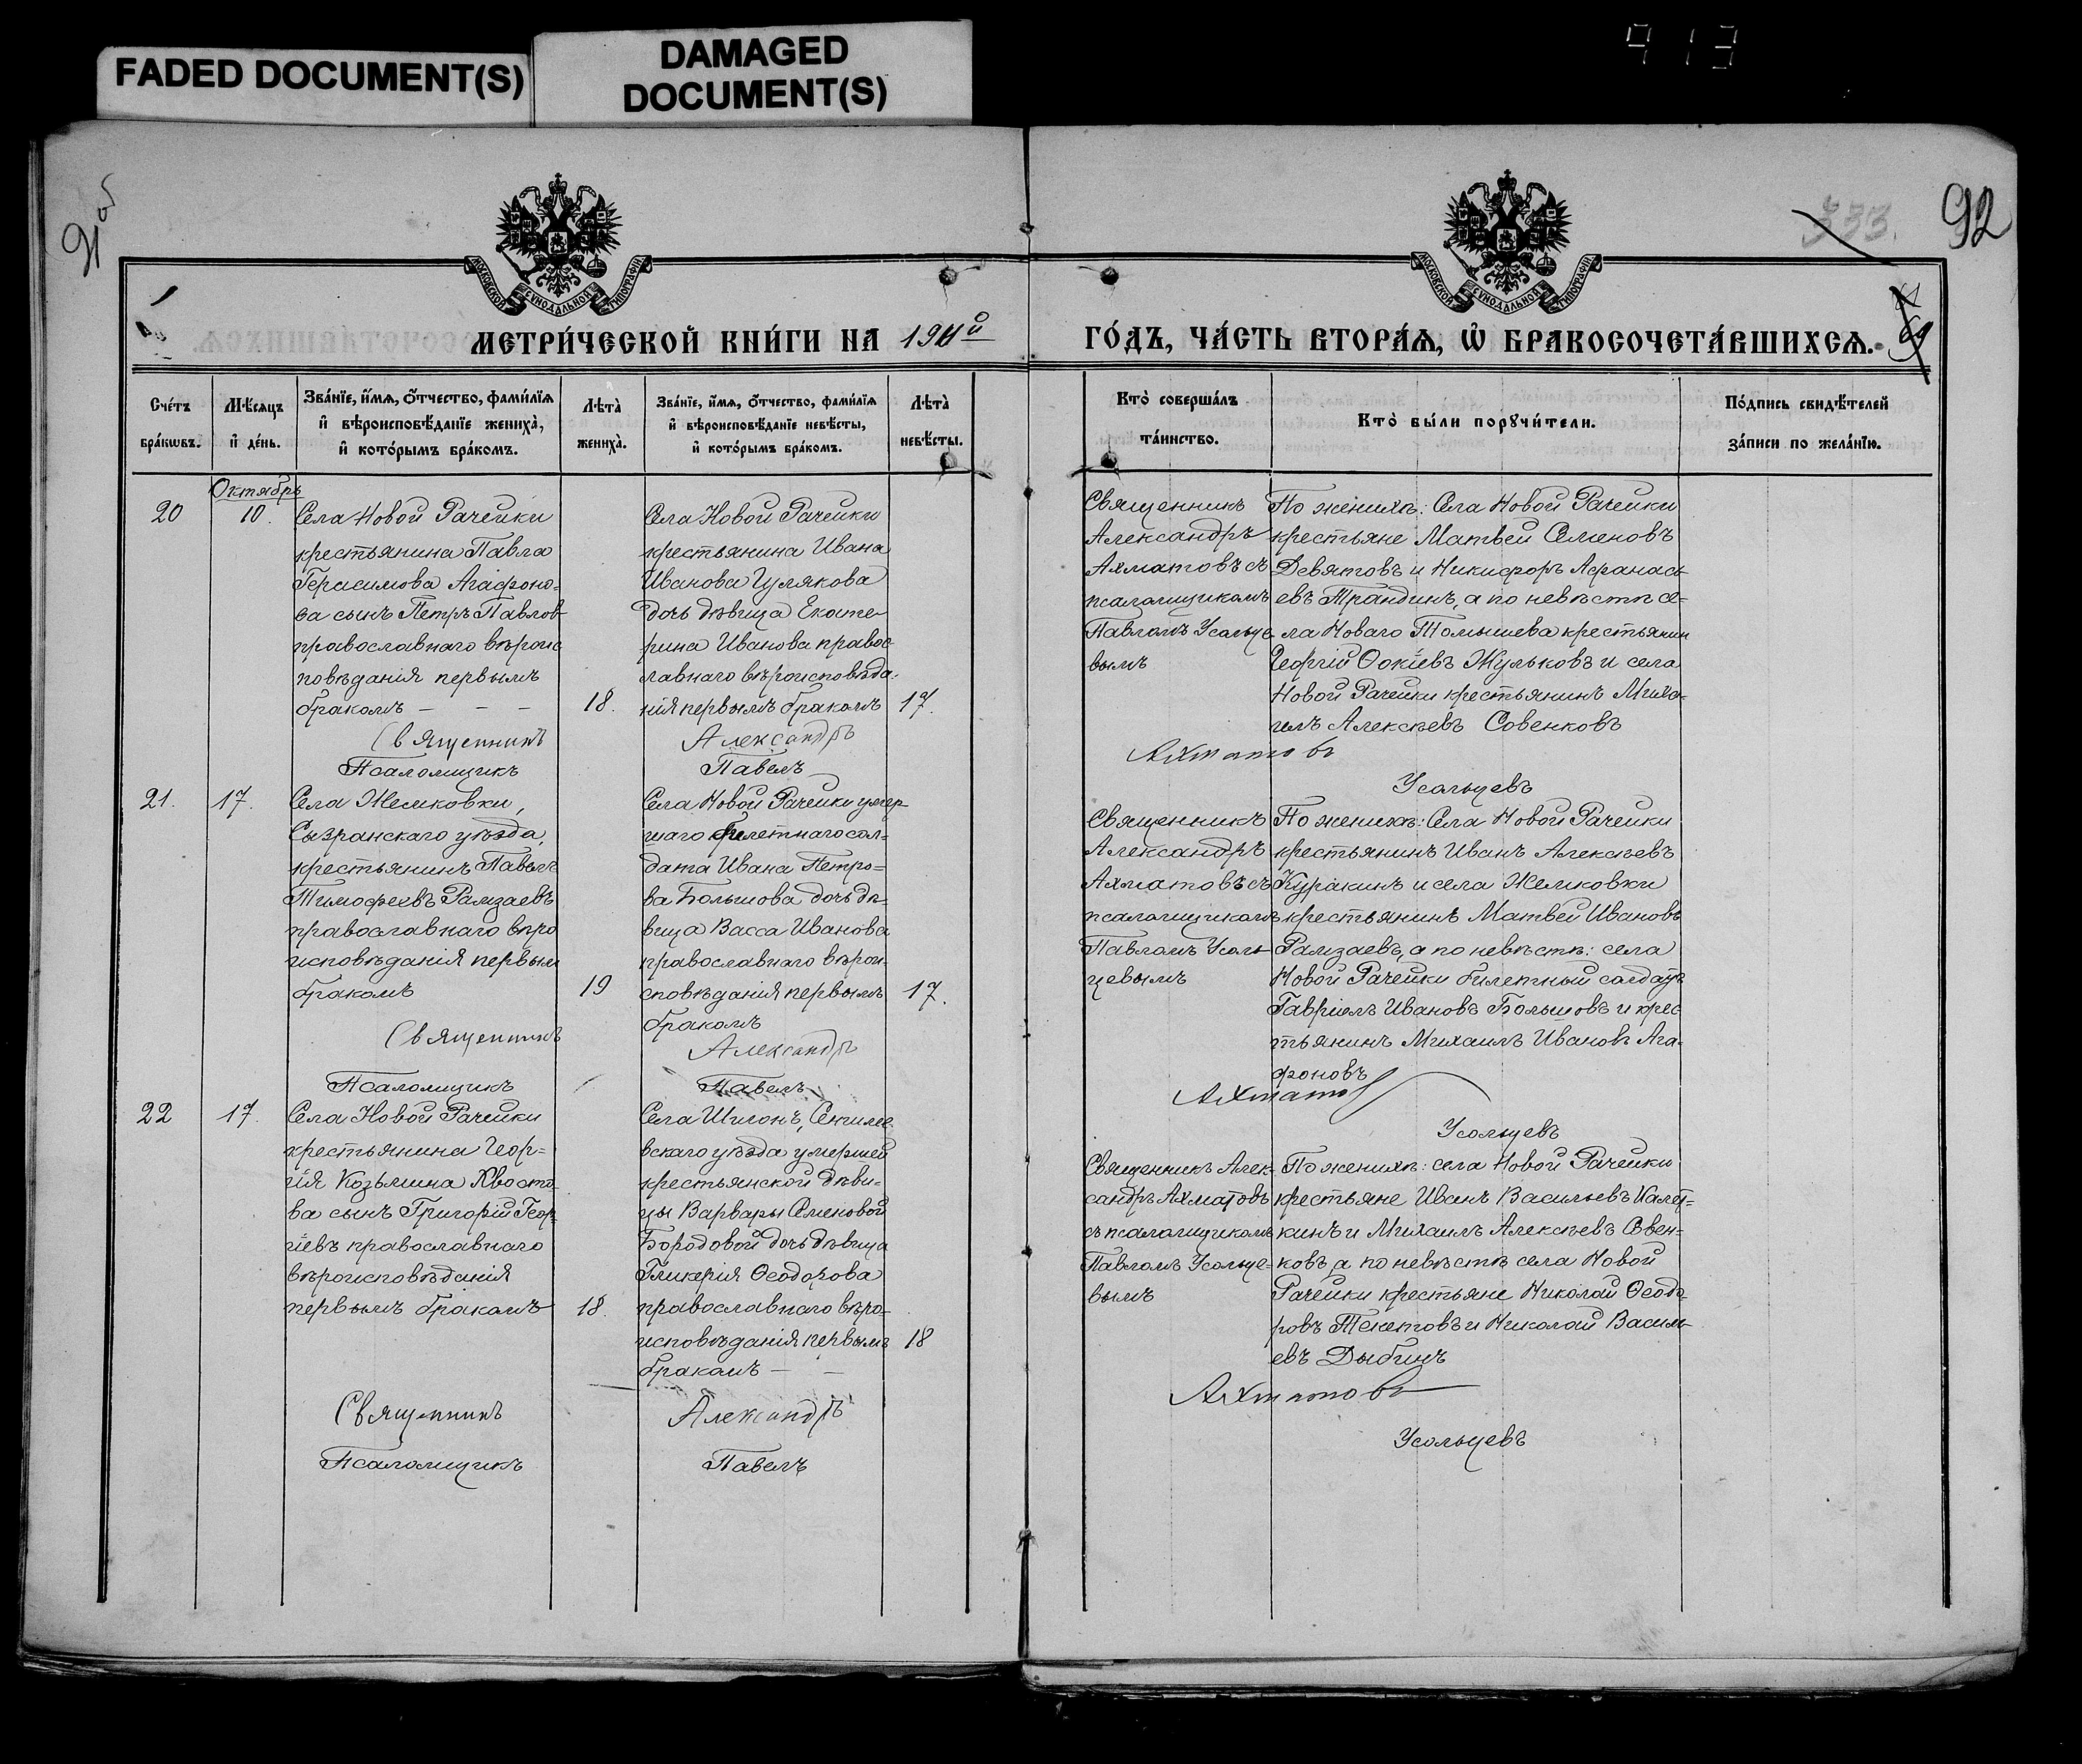 FADED DOCUMENT(S)
DAMAGED
DOCUMENT(S)
413
92
333.
МОСКОВСКОЙ СѴНОДАЛЬНОЙ ТИПОГРАФІИ
МОСКОВСКОЙ СѴНОДАЛЬНОЙ ТИПОГРАФІИ
МЕТРИ́ЧЕСКОЙ КНИ́ГИ НА 1911й
ГО́ДЪ, ЧА́СТЬ ВТОРА́Ѧ, Ѡ БРАКОСОЧЕТА́ВШИХСѦ.
Сче́тъ бра́кѡвъ.
Мѣ́сяцъ и де́нь.
Зва́нїе, и́мѧ, о́тчество, фами́лїѧ и вѣроисповѣ́данїе жениха̀, и кото́рымъ бра́комъ.
Лѣта̀ жениха̀.
Зва́нїе, и́мѧ, о́тчество, фами́лїѧ и вѣроисповѣ́данїе невѣ́сты, и кото́рымъ бра́комъ.
Лѣта̀ невѣ́сты.
Кто̀ соверша́лъ та́инство.
Кто̀ бы́ли порꙋчи́тели.
По́дпись свидѣ́телей за́писи по жела́нїю.
Октябрь
20
10.
Села Новой Рачейки
крестьянина Павла
Герасимова Агафоно-
ва сынъ Петръ Павлов
православнаго вѣроис
повѣданія первымъ
бракомъ – – –
18.
Села Новой Рачейки
крестьянина Ивана
Иванова Гулякова
дочь дѣвица Екате
рина Иванова правос
лавнаго вѣроисповѣда-
нія первымъ бракомъ
17.
Священникъ
Александръ
Ахматовъ съ
псаломщикомъ
Павломъ Усольце
вымъ
По женихѣ: Села Новой Рачейки
крестьяне Матвей Семеновъ
Девятовъ и Никифоръ Афанась
евъ Трандинъ, а по невѣстѣ се-
ла Новаго Томышева крестьянин
Георгій Фокіевъ Жульковъ и села
Новой Рачейки крестьянинъ Миха-
илъ Алексѣевъ Совенковъ
Священникъ Александръ Ахматовъ
Псаломщикъ Павелъ Усольцевъ
21.
17.
Села Жемковки,
Сызранскаго уѣзда,
крестьянинъ Павелъ
Тимофеевъ Рамзаевъ
православнаго вѣро
исповѣданія первым
бракомъ
19
Села Новой Рачейки умер-
шаго билетнаго сол-
дата Ивана Петро-
ва Большова дочь дѣ-
вица Васса Иванова
православнаго вѣрои-
споведанія первымъ
бракомъ
17.
Священникъ
Александръ
Ахматовъ съ
псаломщикомъ
Павломъ Усоль
цевымъ
По женихѣ: Села Новой Рачейки
крестьянинъ Иванъ Алексѣевъ
Куракинъ и села Жемковки
крестьянинъ Матвей Ивановъ
Рамзаевъ, а по невѣстѣ: села
Новой Рачейки билетный солдатъ
Гавріилъ Ивановъ Большовъ и крес
тьянинъ Михаилъ Ивановъ Ага-
фоновъ
Священникъ Александръ Ахматов
Псаломщикъ Павелъ Усольцевъ
22
17.
Села Новой Рачейки
крестьянина Геор-
гія Козьмина Хвосто-
ва сынъ Григорій Геор-
гіевъ православнаго
вѣроисповѣданія
первымъ бракомъ
18.
Села Шигонъ, Сенгилее
вскаго уѣзда умершей
крестьянской дѣви-
цы Варвары Семеновой
Бородовой дочь дѣвица
Гликерія Ѳеодорова
православнаго вѣро-
исповѣданія первымъ
бракомъ – –
18
Священникъ Алек-
сандръ Ахматовъ
съ псаломщикомъ
Павломъ Усольце-
вымъ
По женихѣ: села Новой Рачейки
крестьяне Иванъ Васильевъ
кинъ и Михаилъ Алексѣевъ Совен-
ковъ, а по невѣстѣ села Новой
Рачейки крестьяне Николай Ѳеодо-
ровъ Тенетовъ и Николай Василь
евъ Дыбинъ
Священникъ Александръ Ахматовъ
Псаломщикъ Павелъ Усольцевъ